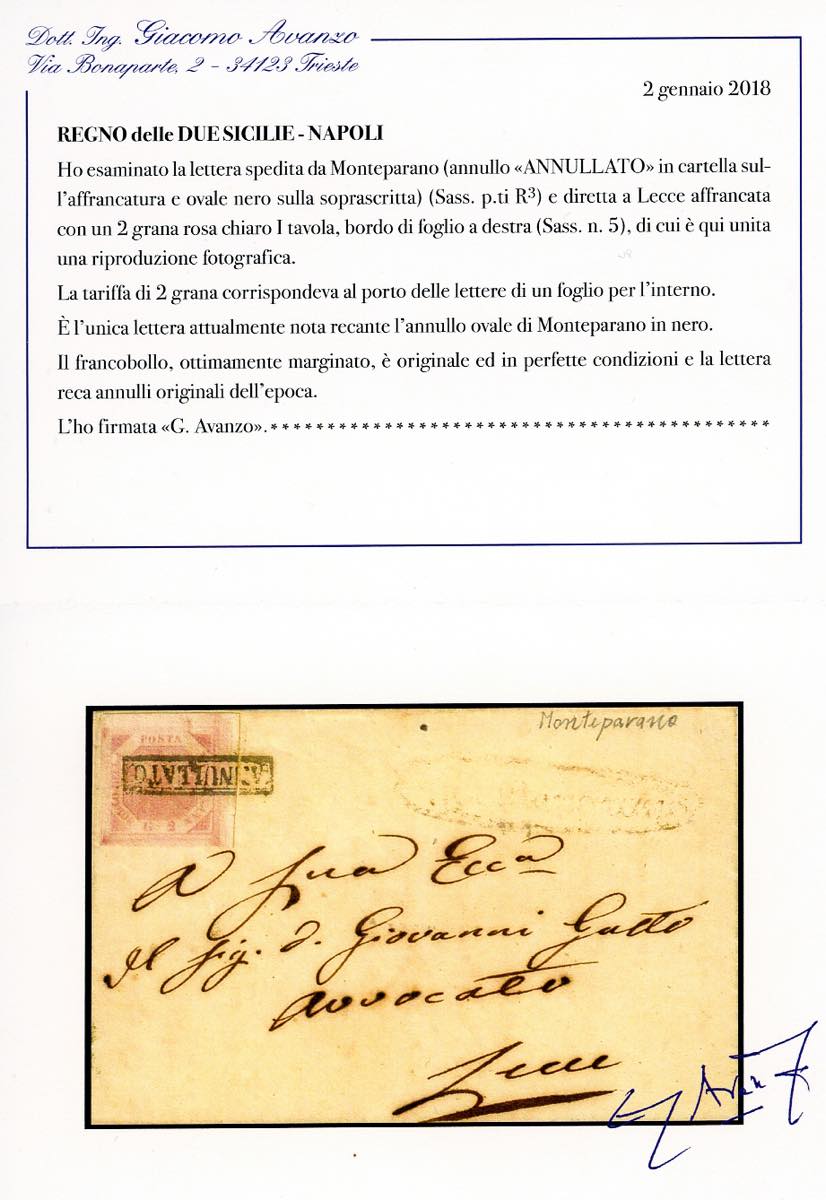 Dott. Ing. Giacomo Avanzo
Via Bonaparte, 2 - 34123 Trieste
2 gennaio 2018
REGNO delle DUE SICILIE - NAPOLI
Ho esaminato la lettera spedita da Monteparano (annullo «ANNULLATO» in cartella sul-
l'affrancatura e ovale nero sulla soprascritta) (Sass. p.ti R³) e diretta a Lecce affrancata
con un 2 grana rosa chiaro I tavola, bordo di foglio a destra (Sass. n. 5), di cui è qui unita
una riproduzione fotografica.
La tariffa di 2 grana corrispondeva al porto delle lettere di un foglio per l'interno.
È l'unica lettera attualmente nota recante l'annullo ovale di Monteparano in nero.
Il francobollo, ottimamente marginato, è originale ed in perfette condizioni e la lettera
reca annulli originali dell'epoca.
L'ho firmata «G. Avanzo».********************************************
Monteparano
POSTA
ANNULLATO
G. 2
A Sua Ecca
Il Sig. D. Giovanni Gatto
Avvocato
Lecce